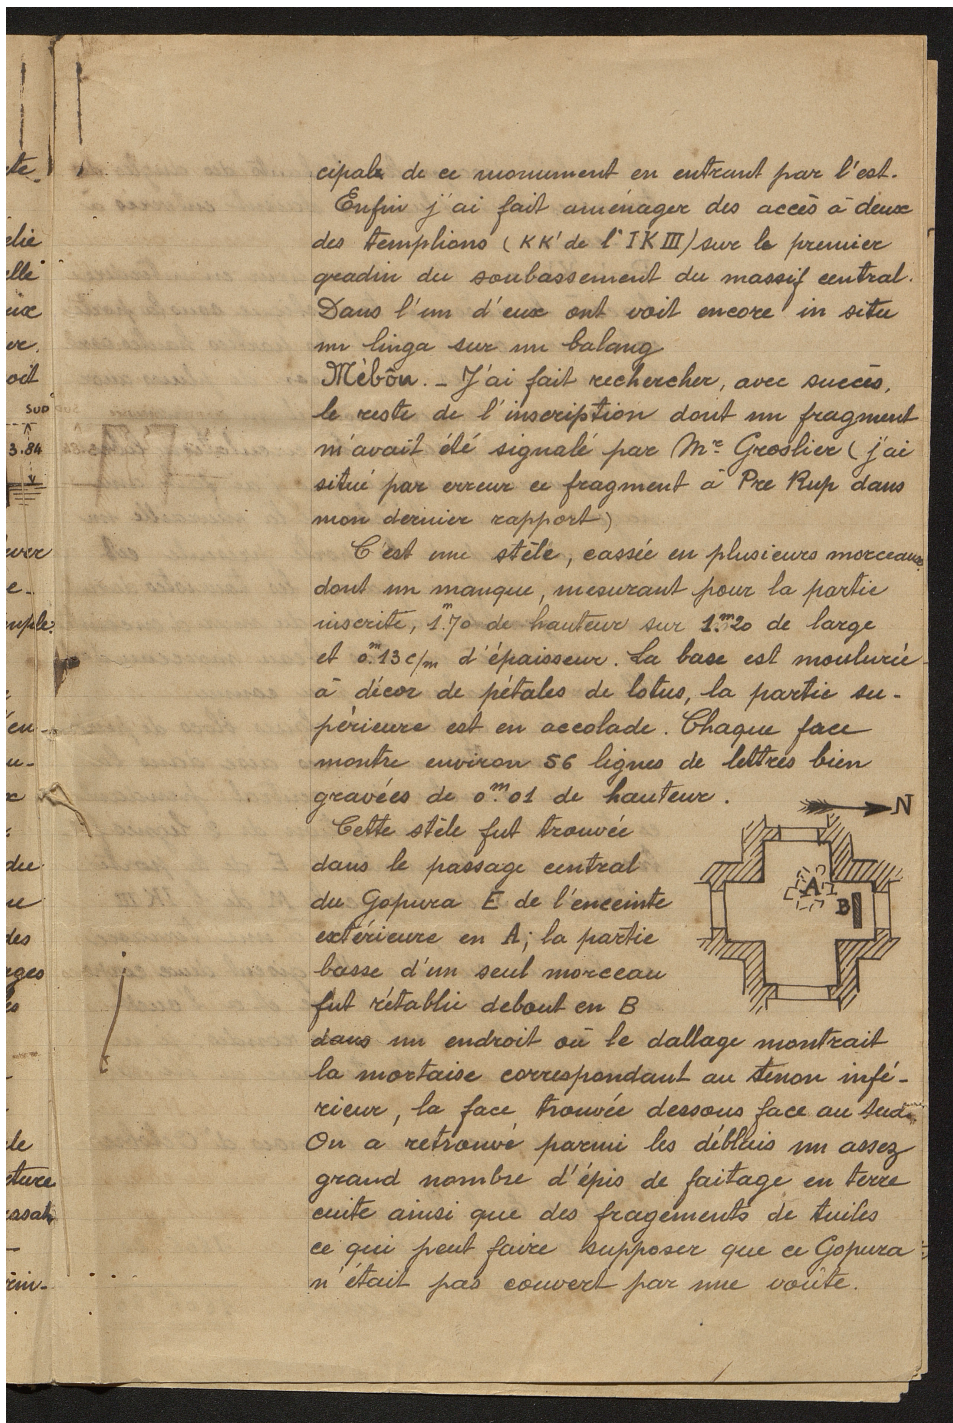 cipale de ce monument en entrant par l'est.
Enfin j'ai fait aménager des accès à deux
des templions (KK' de l'IKIII) sur le premier
gradin du soubassement du massif central.
Dans l'un d'eux ont voit encore in situ
un linga sur un balang
Mébôn. - J'ai fait rechercher, avec succès,
le reste de l'inscription dont un fragment
m'avait été signalé par Mr Groslier (j'ai
situé par erreur ce fragment à Pre Rup dans
mon dernier rapport)
C'est une stèle, cassée en plusieurs morceaux
dont un manque, mesurant pour la partie
inscrite, 1m70 de hauteur sur 1m20 de large
et 0m13 c/m d'épaisseur. La base est moulurée
à décor de pétales de lotus, la partie su-
périeure est en accolade. Chaque face
montre environ 56 lignes de lettres bien
gravées de 0m01 de hauteur.
Cette stèle fut trouvée
dans le passage central
du Gopura E de l'enceinte
extérieure en A; la partie
basse d'un seul morceau
fut rétablie debout en B
dans un endroit où le dallage montrait
la mortaise correspondant au tenon infé-
rieur, la face trouvée dessous face au Sud.
On a retrouvé parmi les déblais un assez
grand nombre d'épis de faitage en terre
cuite ainsi que des fragements de tuiles
ce qui peut faire supposer que ce Gopura
n'était pas couvert par une voûte.
N
A
B
SUD
3.84